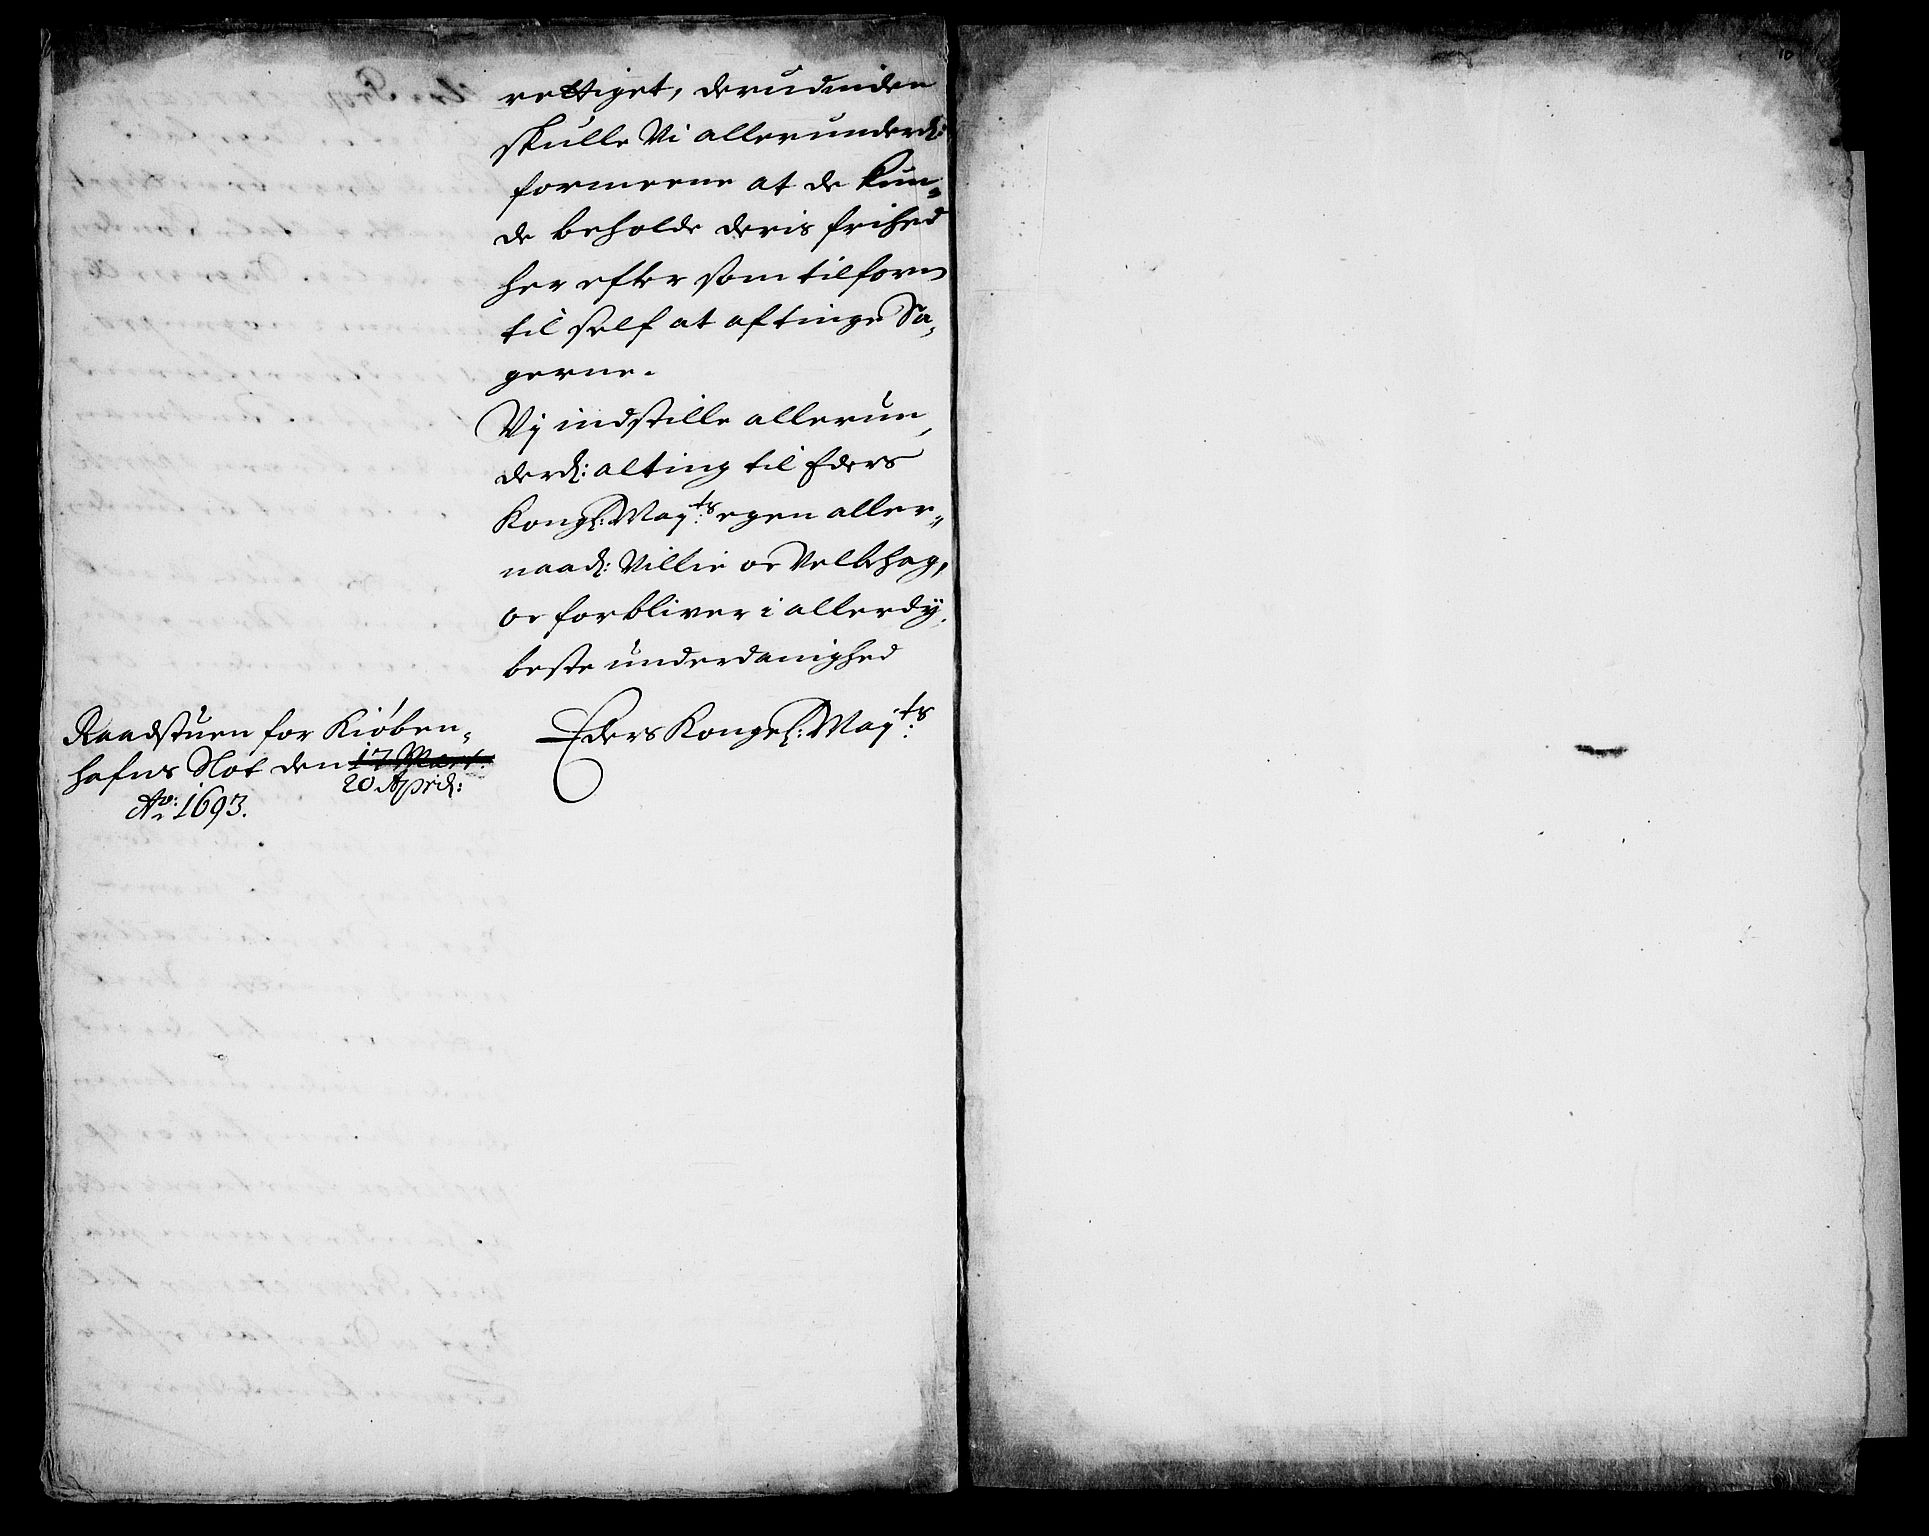 rettiget, derudinden
skulle Vi allerunderd:
formeene at de kun„
de beholde deris frihed
her efter som tilforn
til self at aftinge Sa„
gerne.
Vÿ indstille allerun„
derd: alting til Eders
Kongl: Maÿts egen aller„
naad: Villie oc Velbehag,
oc forbliver i allerdÿ„
beste underdanighed
Eders Kongel: Maÿts:
Raadstuen for Kiøben„
hafns Slot den 17 Mart:
20 April:
Ao: 1693.
10